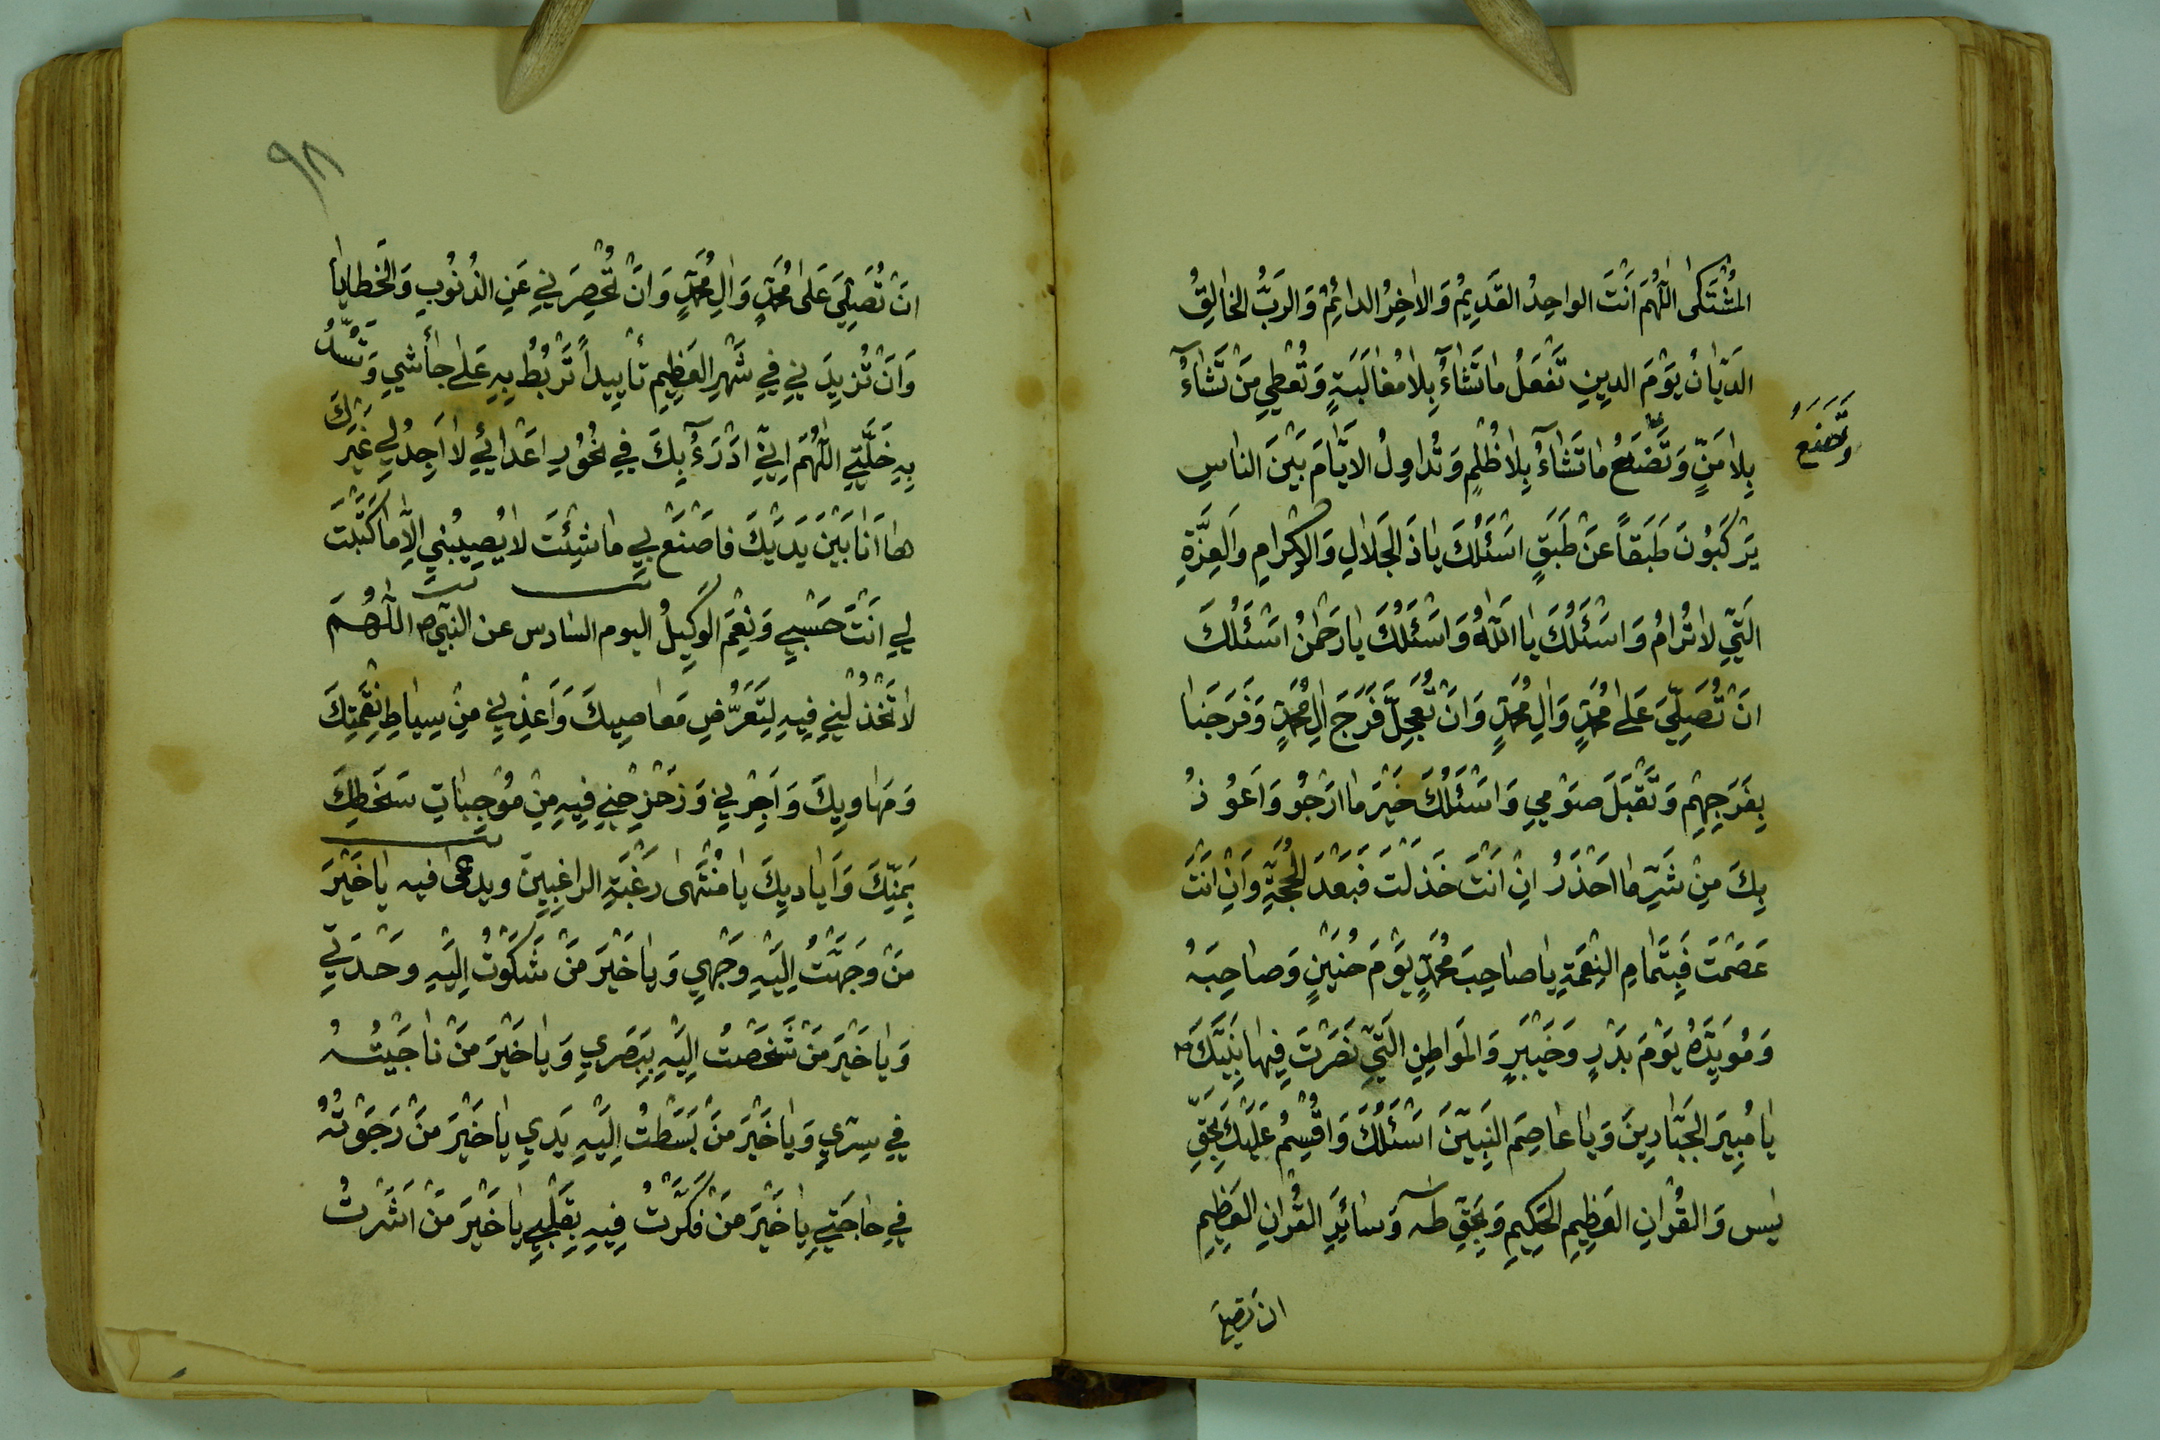 المُشْتَكىٰ اللّٰهُمَّ اَنْتَ الواحِدُ القَدِيمُ وَالاخِرُ الدائِمُ وَالرَبُّ الخالِقُ
الدَيّانُ يَوْمَ الدِينِ تَفْعَلُ ماتَشآءُ بِلامُغالَبَةٍ وَتُعْطِي مَنْ تَشآءُ
وَتَمْنَعُ
بِلامَنٍّ وَتَصْنَعُ ماتَشآءُ بِلاظُلْمٍ وَتُداوِلُ الايّامَ بَيْنَ الناسِ
يَرْكَبُونَ طَبَقاً عَنْ طَبَقٍ اسْئَلُكَ ياذَ الجَلالِ وَالاِكْرامِ وَالعِزَّةِ
الَتِّي لاتُرامُ وَاسْئَلُكَ يااللّٰهُ وَاسْئَلُكَ يارَحْمٰنُ اسْئَلُكَ
انْ تُصَلِّيَ عَلىٰ مُحَمَّدٍ وَالِ مُحَمَّدٍ وَانْ تُعَجِّلَ فَرَجَ الِ مُحَمَّدٍ وَفَرَجَنا
بِفَرَجِهِم وَتَقْبَلَ صَوْمِي وَاسْئَلُكَ خَيْرَ ماارْجُو وَاَعُوذُ
بِكَ مِنْ شَرِّ مااحْذَرُ انْ انْتَ خَذَلْتَ فَبَعْدَ الحُجَّةِ وَانْ انْتَ
عَصَمْتَ فَبِتَمامِ النِعْمَةِ ياصاحِبَ مُحَمَّدٍ يَوْمَ حُنَيْنٍ وَصاحِبَهُ
وَمُوَيِّدَهُ يَوْمَ بَدْرٍ وَخَيْبَرٍ وَالمَواطِنِ الَتِّي نَصَرْتَ فِيها نَبِيَّكَ
يامُبِيرَ الجَبّارِينَ وَياعاصِمَ النَبِيّنَ اسْئَلُكَ وَاقْسِمُ عَلَيْكَ بِحَقِّ
يٰس وَالقُرْانِ العَظِيمِ الحَكِيمِ وَبِحَقِّ طٰه وَسائِرِ القُرْانِ العَظِيمِ
ان تصلي
٩٨
انْ تُصَلِّيَ عَلىٰ مُحَمَّدٍ وَالِ مُحَمَّدٍ وَانْ تُحْصِرَنِي عَنِ الذُنُوبِ وَالخَطايا
وَانْ تُزِيدَنِي فِي شَهْرِ العَظِيمِ تَأيِيداً تَرْبُطُ بِهِ عَلىٰ جَأشي وَتَسُدُّ
بِهِ خَلَّتِي اللّٰهُمَّ اِنِّي ادْرَءُ بِكَ فِي نُحُورِ اعْدائِي لااَجِدُ لِي غَيْرَكَ
هااَنابَيْنَ يَدَيْكَ فاصْنَعْ بِي ماشِئْتَ لايُصِيبُنِي الّا ماكَتَبْتَ
لِي انْتَ حَسْبِي وَنِعْمَ الوَكِيلُ اليوم السادس عن النبيّ ص اللّٰهُمَّ
لاتَخْذُلْنِي فِيهِ لِتَعَرُّضِ مَعاصِيكَ وَاَعِذْنِي مِنْ سِياطِ نِقْمَتِكَ
وَمَهاوِيكَ وَاَجِرْنِي وَزَحْزِحْنِي فِيهِ مِنْ مُوْجِباتِ سَخَطِكَ
بِمَنِّكَ وَاَيادِيكَ يامُنْتَهىٰ رَغْبَةِ الراغِبِينَ ويدعىٰ فيه ياخَيْرَ
مَنْ وَجَّهْتُ اِلَيْهِ وَجْهِي وَياخَيْرَ مَنْ شَكَوْتُ اِلَيْهِ وَحْدَتِي
وَياخَيْرَ مَنْ شَخَصْتُ اِلَيْهِ بِبَصَرِي وَياخَيْرَ مَنْ ناجَيْتُهُ
فِي سِرِّي وَياخَيْرَ مَنْ بَسَطْتُ اِلَيْهِ يَدِي ياخَيْرَ مَنْ رَجَوْتُهُ
فِي حاجَتِي ياخَيْرَ مَنْ فَكَّرْتُ فِيهِ بِقَلْبِي ياخَيْرَ مَنْ اشَرْتُ